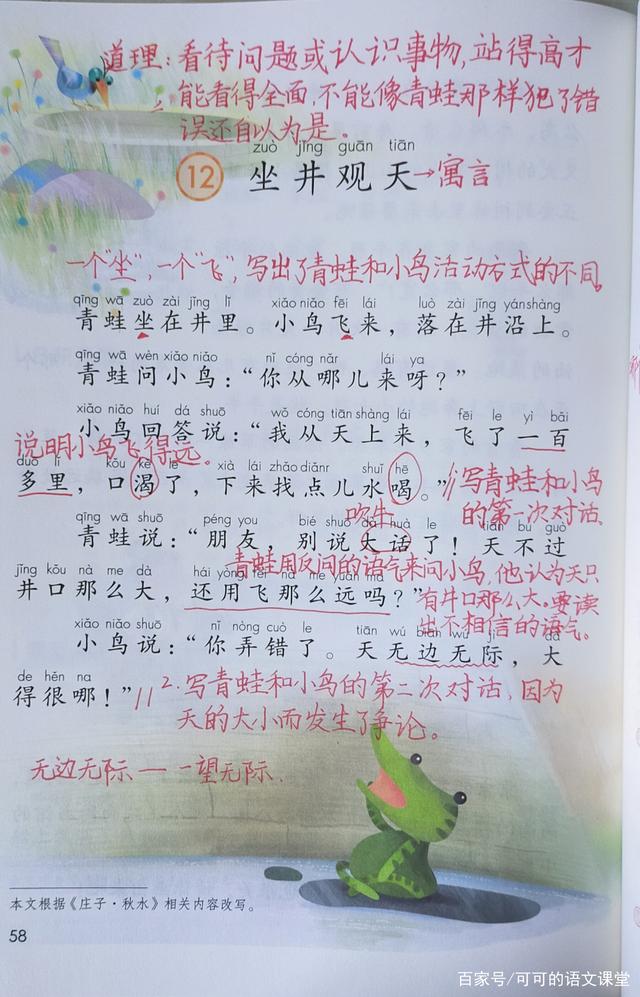 道理：看待问题或认识事物，站得高才
能看得全面，不能像青蛙那样犯了错
误还自以为是。
zuò jǐng guān tiān
12 坐井观天→寓言
一个“坐”，一个“飞”，写出了青蛙和小鸟活动方式的不同。
qīng wā zuò zài jǐng lǐ xiǎo niǎo fēi lái luò zài jǐng yán shàng
青蛙坐在井里。小鸟飞来，落在井沿上。
qīng wā wèn xiǎo niǎo nǐ cóng nǎr lái ya
青蛙问小鸟：“你从哪儿来呀？”
xiǎo niǎo huí dá shuō wǒ cóng tiān shàng lái fēi le yì bǎi
小鸟回答说：“我从天上来，飞了一百
说明小鸟飞得远。
duō lǐ kǒu kě le xià lái zhǎo diǎnr shuǐ hē
多里，口渴了，下来找点儿水喝。”//写青蛙和小鸟
的第一次对话
qīng wā shuō péng you bié shuō dà huà le tiān bú guò
吹牛
青蛙说：“朋友，别说大话了！天不过
青蛙用反问的语气来问小鸟，他认为天只
jǐng kǒu nà me dà hái yòng fēi nà me yuǎn ma
井口那么大，还用飞那么远吗？”有井口那么大。要读
出不相信的语气。
xiǎo niǎo shuō nǐ nòng cuò le tiān wú biān wú jì dà
小鸟说：“你弄错了。天无边无际，大
de hěn na
得很哪！”//2.写青蛙和小鸟的第二次对话，因为
天的大小而发生了争论。
无边无际——一望无际.
本文根据《庄子·秋水》相关内容改写。
58
百家号/可可的语文课堂